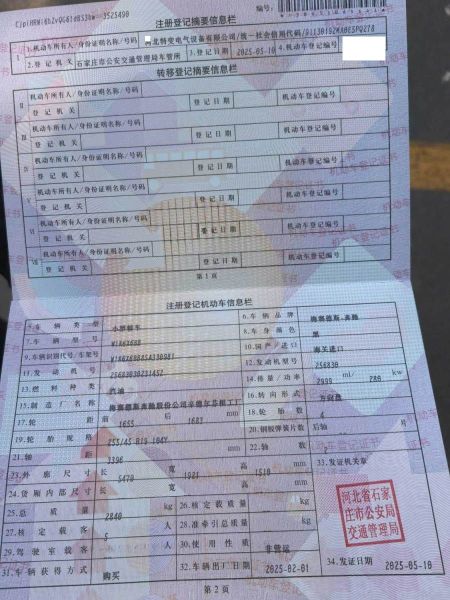 注册登记摘要信息栏
编号:
I
1.机动车所有人/身份证明名称/号码 河北特变电气设备有限公司/统一社会信用代码/
2.登记机关 石家庄市公安交通管理局车管所 3.登记日期 2025-05-10 4.机动车登记编号
转移登记摘要信息栏
II
机动车所有人/身份证明名称/号码
登记机关 登记日期 机动车登记编号
III
机动车所有人/身份证明名称/号码
登记机关 登记日期 机动车登记编号
IV
机动车所有人/身份证明名称/号码
登记机关 登记日期 机动车登记编号
V
机动车所有人/身份证明名称/号码
登记机关 登记日期 机动车登记编号
VI
机动车所有人/身份证明名称/号码
登记机关 登记日期 机动车登记编号
VII
机动车所有人/身份证明名称/号码
登记机关 登记日期 机动车登记编号
第1页
注册登记机动车信息栏
5.车辆类型 小型轿车 6.车辆品牌 梅赛德斯-奔驰
7.车辆型号 8.车身颜色 黑
9.车辆识别代号/车架号 10.国产/进口 海关进口
11.发动机号 12.发动机型号 256830
13.燃料种类 汽油 14.排量/功率 2999 ml/ 280 kw
15.制造厂名称 梅赛德斯奔驰股份公司辛德尔芬根工厂 16.转向形式 方向盘
17.轮距 前 1655 后 1683 mm 18.轮胎数 4
19.轮胎规格 255/45 R19 104Y 20.钢板弹簧片数 后轴 片
21.轴距 mm 22.轴数 2
23.外廓尺寸 长 5470 宽 1921 高 1510 mm 33.发证机关章
24.货厢内部尺寸 长 宽 高 mm
25.总质量 2840 kg 26.核定载质量 kg
27.核定载客 5 人 28.准牵引总质量 kg
29.驾驶室载客 人 30.使用性质 非营运
31.车辆获得方式 购买 32.车辆出厂日期 2025-02-01 34.发证日期 2025-05-10
河北省石家
庄市公安局
交通管理局
第2页